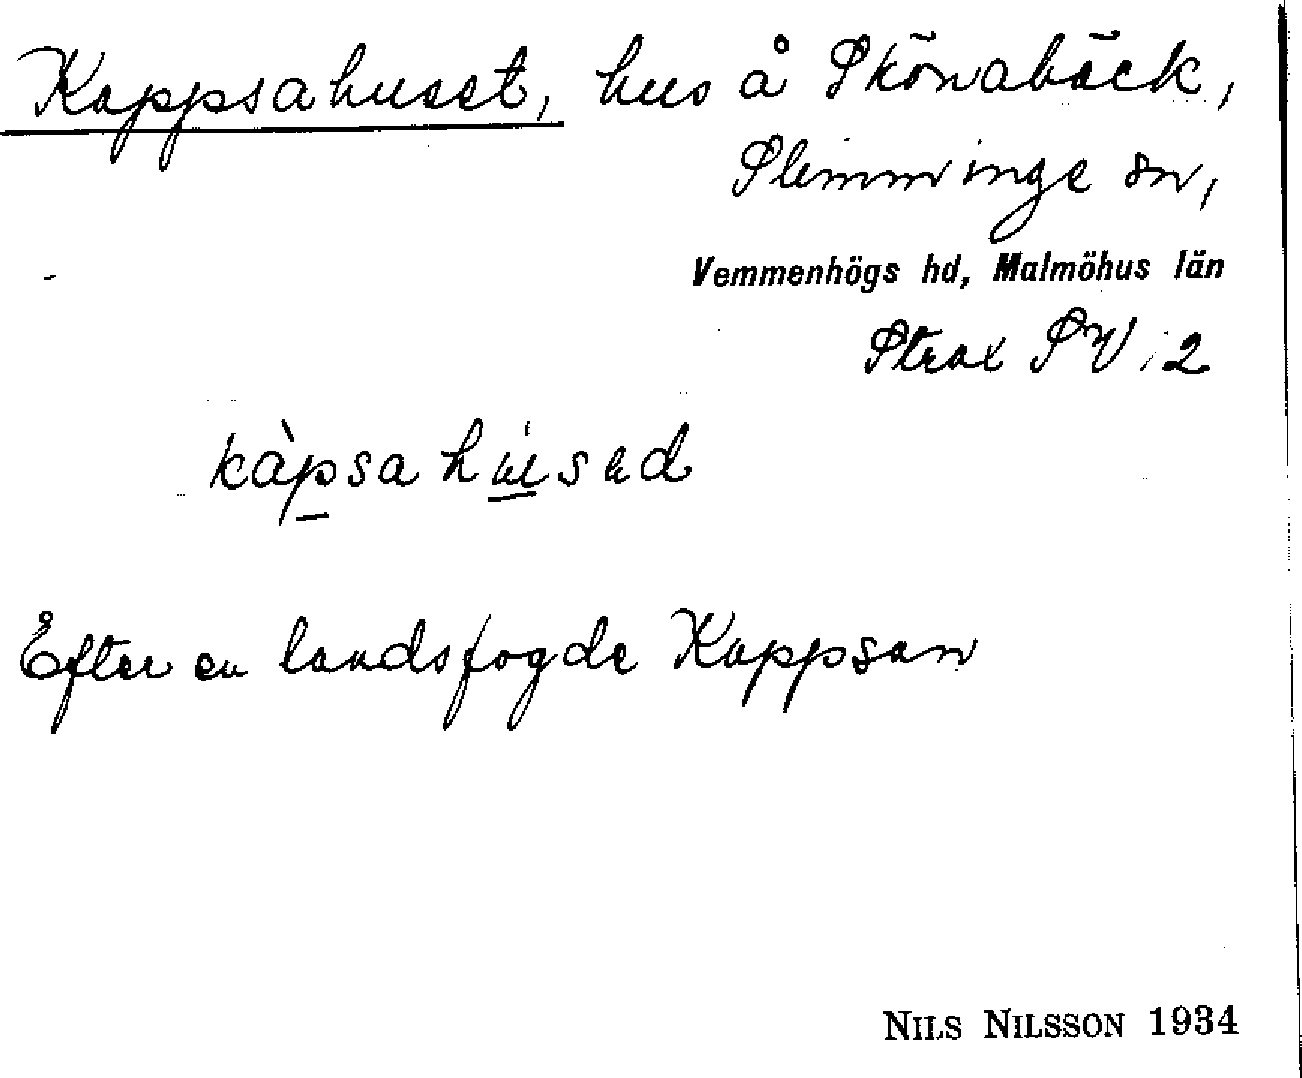 Kappsahuset, hus å Skönabäck,
Slimminge sn,
Vemmenhögs hd, Malmöhus län
Strax SV 2
kàpsahúsəd
Efter en landsfogde Kappson
NILS NILSSON 1934